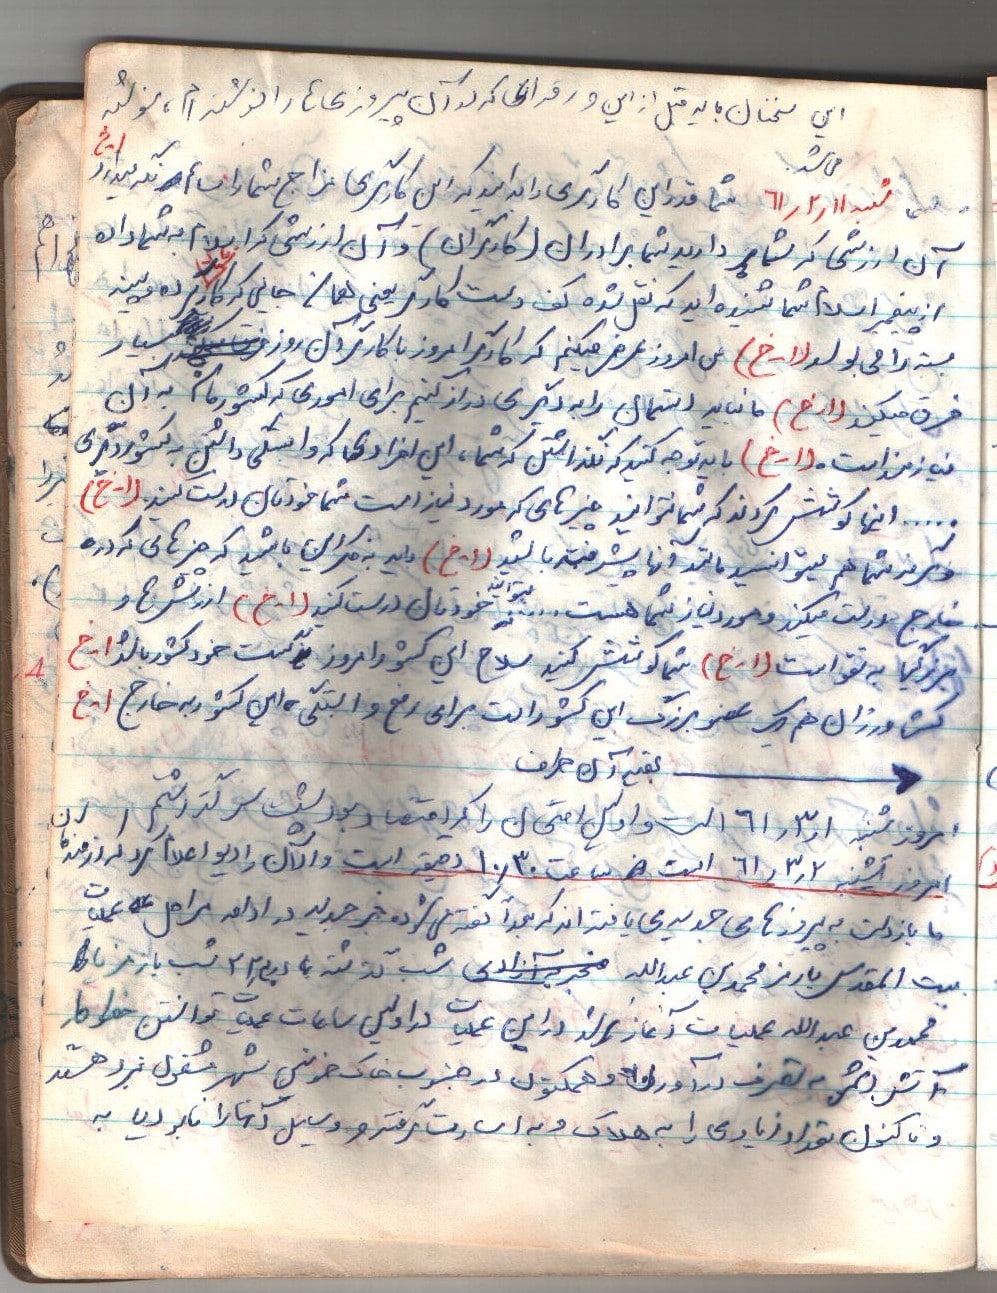 این سخنان باید قبل از این ورقهائی که در آن پیروزی ها را نوشته ام، نوشته
می شد
شنبه ۶۱/۲/۱۱ شما قدر این کارگری را بدانید که این کارگری مزاج شما را سالم نگه میدارد ا.خ
آن ارزشی که شما دارید شما برادران (کارگران) و آن ارزشی که اسلام به شما داده
از پیغمبر اسلام شما شنیده اید که نقل شده کف دست کارگر یعنی همان جایی که کار کرده و پینه
بسته را می بوسد (ا-خ) من امروز عرض میکنم که کارگر امروز با کارگر آن روز بسیار
فرق میکند (ا-خ) ما نباید دستمان را به دیگری دراز کنیم برای اموری که کشور ما به آن
نیازمند است. (ا-خ) باید توجه کنید که نگذاشتن که شما، این افرادی که وابستگی داشتن به کشور دیگری
..... اینها کوشش کردند که شما نتوانید چیزهای که مورد نیاز است شما خودتان درست کنید. (ا-خ)
وگرنه شما هم میتوانستید مانند آنها پیشرفته باشید (ا-خ) باید به فکر این باشید که چیزهائی که در
خارج درست میکنند و مورد نیاز شما هست ..... بتوانید خودتان درست کنید (ا-خ) ارزشها و
بزرگیها به تقوا است (ا-خ) شما کوشش کنید سلاح این کشور امروز دست خود کشور باشد ا-خ
کشاورزان هم یک عضو بزرگ این کشور است برای رفع وابستگی این کشور به خارج ا-خ
بقیه آن طرف
امروز شنبه ۶۱/۳/۱ است و اولین امتحان را که اقتصاد بود پشت سر گذاشتم
امروز یکشنبه ۶۱/۳/۲ است ساعت ۱۰،۳۰ دقیقه است و الآن رادیو اعلام کرد که رزمندگان
ما باز دست به پیروزی های جدیدی یافته اند که بعداً گفته می شود خبر جدید در ادامه مراحل عملیات
بیت المقدس با رمز محمد بن عبدالله شب گذشته ساعت ۲۲ شب با رمز یا
محمد بن عبدالله عملیات آغاز شد در این عملیات در اولین ساعات عملیات توانستن خطوط
آتش دشمن به تصرف درآورند و هم اکنون در جنوب خاک خونین شهر مشغول نبرد هستند
و تا کنون تعداد زیادی را به هلاکت و به اسارت گرفته و وسایل آنها را نابود یا به